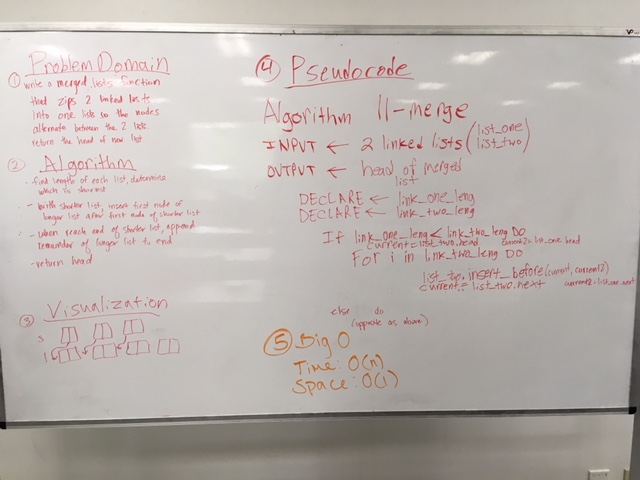 Problem Domain
① write a merged lists function
that zips 2 linked lists
into one list so the nodes
alternate between the 2 lists.
return the head of new list
② Algorithm
- find length of each list, determine
which is shortest
- with shorter list, insert first node of
longer list after first node of shorter list
- when reach end of shorter list, append
remainder of longer list to end
- return head
③ Visualization
④ Pseudocode
Algorithm ll-merge
INPUT ← 2 linked lists (list_one
list_two)
OUTPUT ← head of merged
list
DECLARE ← link_one_leng
DECLARE ← link_two_leng
If link_one_leng < link_two_leng DO
current = list_two.head current2 = list_one.head
For i in link_two_leng DO
list_two.insert_before(current, current2)
current = list_two.next current2 = list_one.next
else do
(opposite as above)
⑤ Big O
Time: O(n)
Space: O(1)